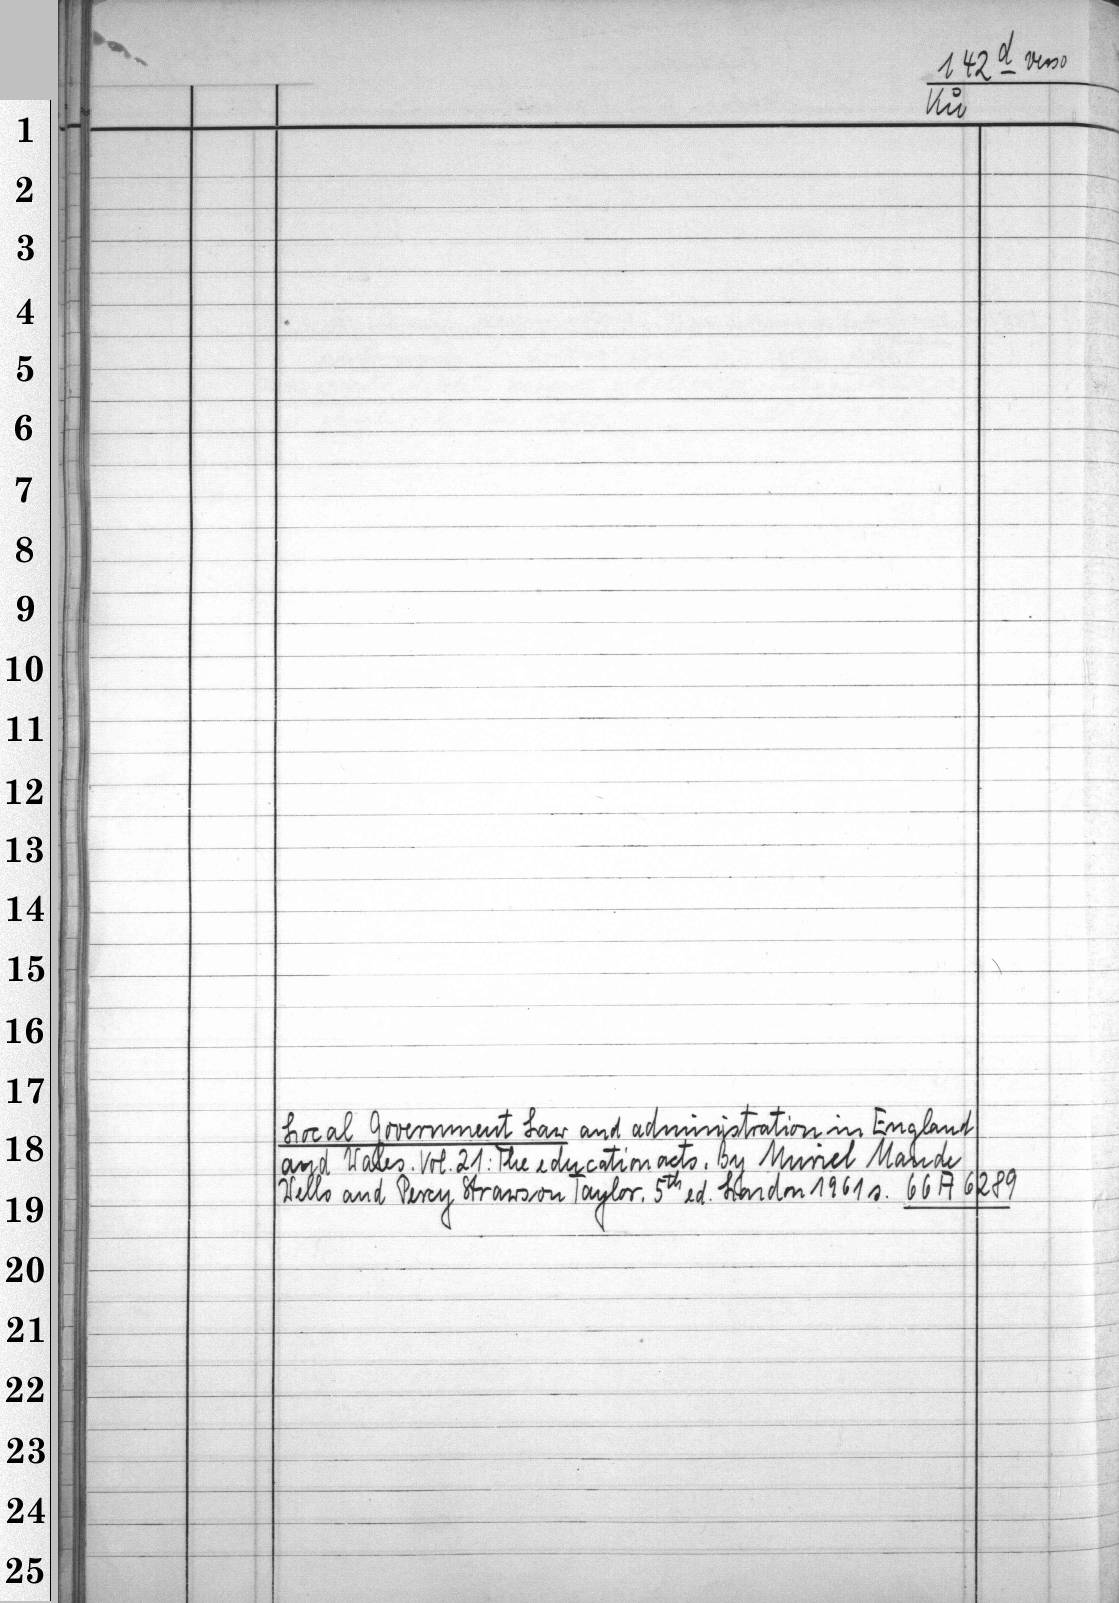 142 d verso
Kü
1
2
3
4
5
6
7
8
9
10
11
12
13
14
15
16
17
Local Government Law and administration in England
18
and Wales. Vol. 21: The education acts. By Muriel Maude
Wells and Percy Strawson Taylor. 5th ed. London 1961 s. 66 A 6289
19
20
21
22
23
24
25